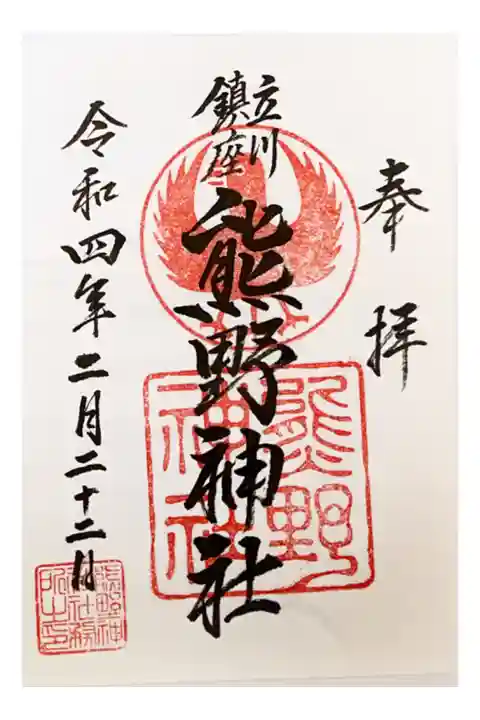 奉拝
立川
鎮座
熊野神社
令和四年二月二十二日
熊野
神社
熊野神
社社務
所之印